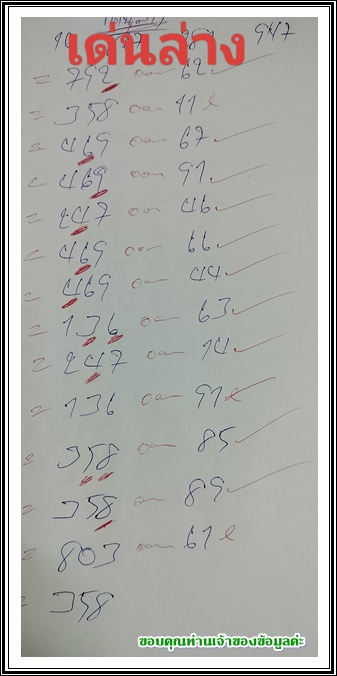 เด่นล่าง
= 792 ออก 62 ✓
= 358 ออก 11 x
= 469 ออก 67 ✓
= 469 ออก 91 ✓
= 247 ออก 46 ✓
= 469 ออก 66 ✓
= 469 ออก 44 ✓
= 136 ออก 63 ✓
= 247 ออก 14 ✓
= 136 ออก 91 x
= 358 ออก 85 ✓
= 358 ออก 89 ✓
= 803 ออก 61 x
= 358
ขอบคุณท่านเจ้าของข้อมูลค่ะ